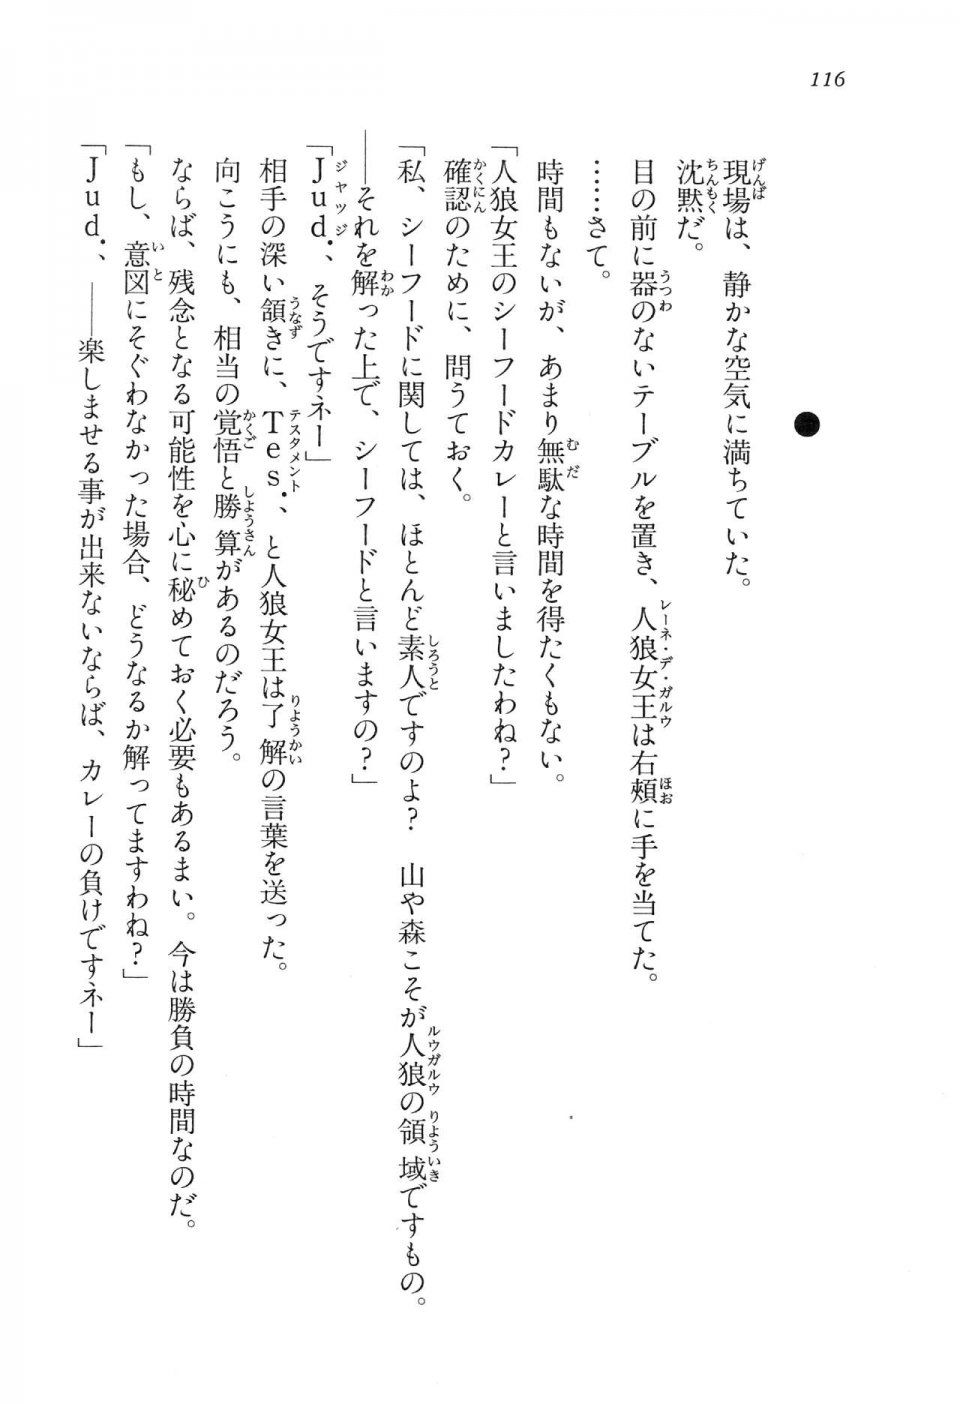 116
●
現場は、静かな空気に満ちていた。
沈黙だ。
目の前に器のないテーブルを置き、人狼女王は右頰に手を当てた。
……さて。
時間もないが、あまり無駄な時間を得たくもない。
「人狼女王のシーフードカレーと言いましたわね？」
確認のために、問うておく。
「私、シーフードに関しては、ほとんど素人ですのよ？　山や森こそが人狼の領域ですもの。
――それを解った上で、シーフードと言いますの？」
「Ｊｕｄ．、そうですネー」
相手の深い頷きに、Ｔｅｓ．、と人狼女王は了解の言葉を送った。
向こうにも、相当の覚悟と勝算があるのだろう。
ならば、残念となる可能性を心に秘めておく必要もあるまい。今は勝負の時間なのだ。
「もし、意図にそぐわなかった場合、どうなるか解ってますわね？」
「Ｊｕｄ．、――楽しませる事が出来ないならば、カレーの負けですネー」